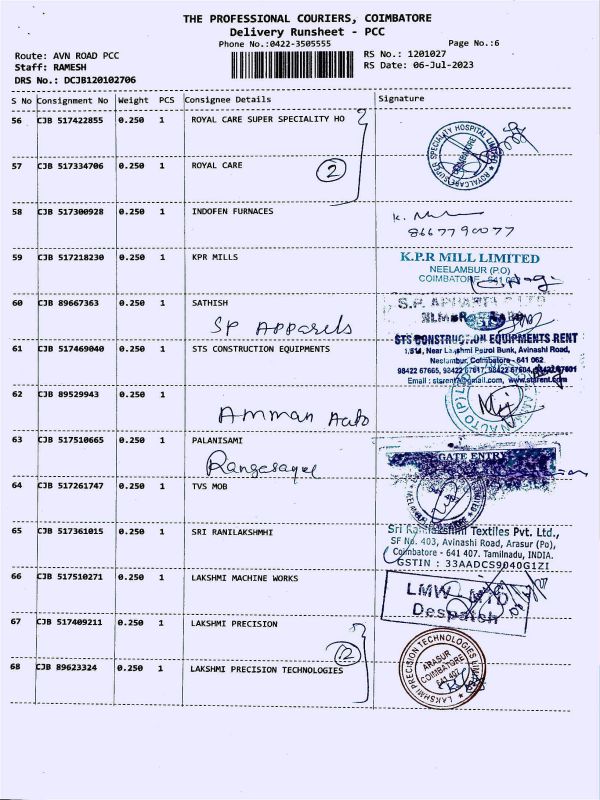 THE PROFESSIONAL COURIERS, COIMBATORE
Delivery Runsheet - PCC
Phone No.:0422-3505555
Page No.:6
Route: AVN ROAD PCC
RS No.: 1201027
Staff: RAMESH
RS Date: 06-Jul-2023
DRS No.: DCJB120102706
S No Consignment No Weight PCS Consignee Details Signature
56 CJB 517422855 0.250 1 ROYAL CARE SUPER SPECIALITY HO
57 CJB 517334706 0.250 1 ROYAL CARE
2
ROYALCARE SUPER SPECIALITY HOSPITAL LIMITED
COIMBATORE
58 CJB 517300928 0.250 1 INDOFEN FURNACES
8667790077
59 CJB 517218230 0.250 1 KPR MILLS
K.P.R MILL LIMITED
NEELAMBUR (P.O)
COIMBATORE - 641 062
60 CJB 89667363 0.250 1 SATHISH
SP Apparels
61 CJB 517469040 0.250 1 STS CONSTRUCTION EQUIPMENTS
STS CONSTRUCTION EQUIPMENTS RENT
Near Lakshmi Petrol Bunk, Avinashi Road,
Neelambur, Coimbatore - 641 062
98422 67665, 98422 67617, 98422 67604, 98422 67601
www.starent.com
62 CJB 89529943 0.250 1
Amman Auto
63 CJB 517510665 0.250 1 PALANISAMI
GATE ENTRY
64 CJB 517261747 0.250 1 TVS MOB
65 CJB 517361015 0.250 1 SRI RANILAKSHMHI
Sri Ranilakshmi Textiles Pvt. Ltd.,
SF No. 403, Avinashi Road, Arasur (Po),
Coimbatore - 641 407. Tamilnadu, INDIA.
GSTIN : 33AADCS9040G1ZI
66 CJB 517510271 0.250 1 LAKSHMI MACHINE WORKS
LMW ATD
Despatch
67 CJB 517409211 0.250 1 LAKSHMI PRECISION
12
68 CJB 89623324 0.250 1 LAKSHMI PRECISION TECHNOLOGIES
LAKSHMI PRECISION TECHNOLOGIES LIMITED
ARASUR
COIMBATORE
641 407